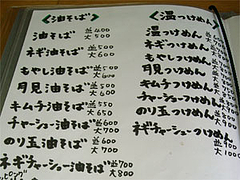 <油そば>
油そば 並400 大500
ネギ油そば 並500 大600
もやし油そば 並500 大600
月見油そば 並500 大600
キムチ油そば 並550 大650
チャーシュー油そば 並600 大700
のり玉油そば 並600 大700
ネギチャーシュー油そば 並700 大800
<温つけめん>
温つけめん
ネギつけめん
もやしつけめん
月見つけめん
キムチつけめん
チャーシューつけめん
のり玉つけめん
ネギチャーシューつけめん